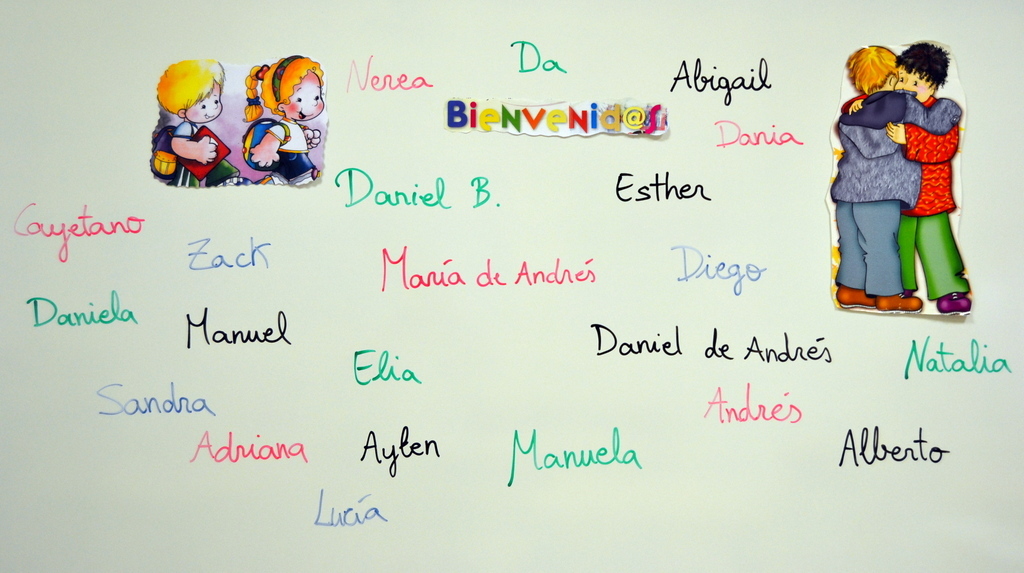 Da
Nerea
Abigail
Bienvenid@s
Dania
Daniel B.
Esther
Cayetano
Zack
María de Andrés
Diego
Daniela
Manuel
Daniel de Andrés
Natalia
Elia
Sandra
Andrés
Adriana
Aylen
Manuela
Alberto
Lucía